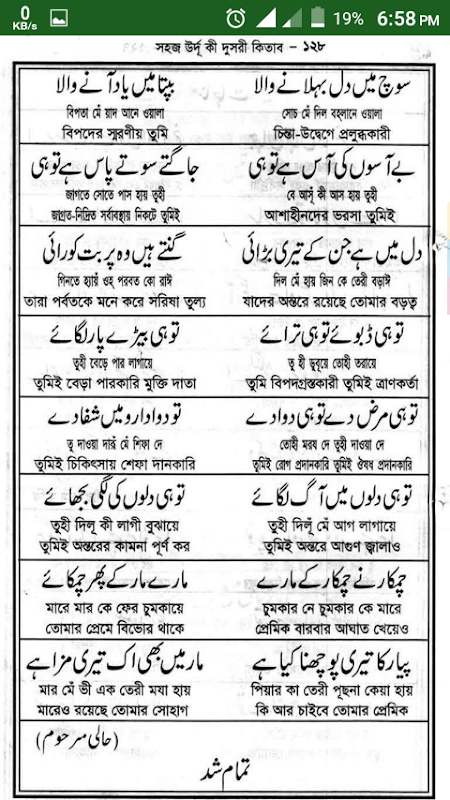 0 KB/s 19% 6:58 PM
সহজ উর্দূ কী দুসরী কিতাব - ১২৮
سوچ میں دل بہلانے والا بپتا میں یاد آنے والا
বিপতা মেঁ য়াদ আনে ওয়ালা সোচ মেঁ দিল বহলানে ওয়ালা
বিপদের স্মরণীয় তুমি চিন্তা-উদ্বেগে প্রলুব্ধকারী
بے آسوں کی آس ہے توہی جاگتے سوتے پاس ہے توہی
জাগতে সোতে পাস হায় তুহী বে আসূঁ কী আস হায় তুহী
জাগ্রত-নিদ্রিত সর্বাবস্থায় নিকটে তুমিই আশাহীনদের ভরসা তুমিই
دل میں ہے جن کے تیری بڑائی گنتے ہیں وہ پربت کو رائی
গিনতে হ্যায়ঁ ওহ্ পরবত কো রাঈ দিল মেঁ হায় জিন কে তেরী বড়াঈ
তারা পর্বতকে মনে করে সরিষা তুল্য যাদের অন্তরে রয়েছে তোমার বড়ত্ব
توہی ڈبوئے توہی ترائے توہی بیڑے پار لگائے
তুহী বেড়ে পার লাগায়ে তু হী ডুবূয়ে তোহী তরায়ে
তুমিই বেড়া পারকারি মুক্তি দাতা তুমি বিপদগ্রস্তকারী তুমিই ত্রাণকর্তা
توہی مرض دے توہی دوا دے تو دوا دارو میں شفا دے
তূ দাওয়া দারূঁ মেঁ শিফা দে তোহী মরয দে তুহী দাওয়া দে
তুমিই চিকিৎসায় শেফা দানকারি তুমিই রোগ প্রদানকারি তুমিই ঔষধ প্রদানকারি
توہی دلوں میں آگ لگائے توہی دلوں کی لگی بجھائے
তূহী দিলূঁ কী লাগী বুঝায়ে তুহী দিলূঁ মেঁ আগ লাগায়ে
তুমিই অন্তরের কামনা পূর্ণ কর তুমিই অন্তরে আগুণ জ্বালাও
چمکارنے چمکار کے مارے مارے مار کے پھر چمکائے
মারে মার কে ফের চুমকায়ে চুমকার নে চুমকার কে মারে
তোমার প্রেমে বিভোর থাকে প্রেমিক বারবার আঘাত খেয়েও
پیار کا تیری پوچھنا کیا ہے مار میں بھی اک تیری مزا ہے
মার মেঁ ভী এক তেরী মযা হায় পিয়ার কা তেরী পূছনা কেয়া হায়
মারেও রয়েছে তোমার সোহাগ কি আর চাইবে তোমার প্রেমিক
(حالی مرحوم)
تمام شد